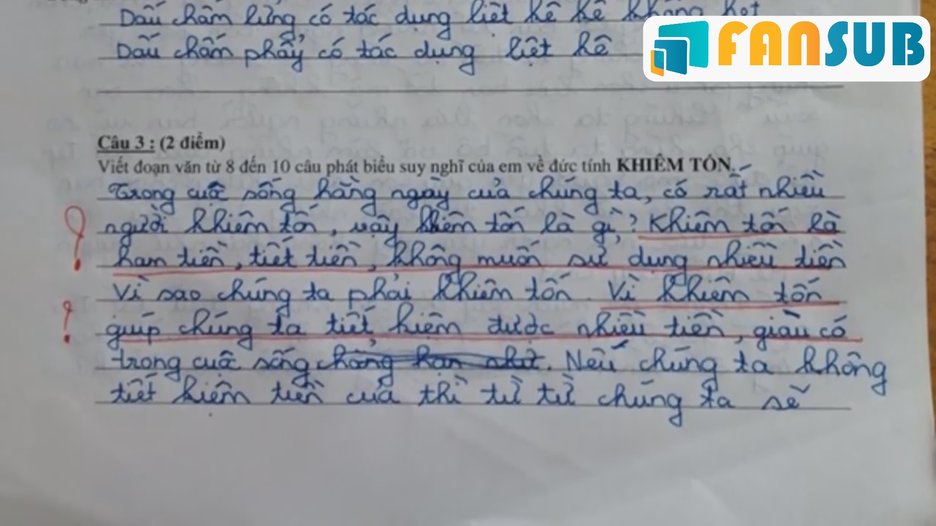 Dấu chấm lửng có tác dụng liệt kê kê không hết
FANSUB
Dấu chấm phẩy có tác dụng liệt kê
Câu 3 : (2 điểm)
Viết đoạn văn từ 8 đến 10 câu phát biểu suy nghĩ của em về đức tính KHIÊM TỐN.
Trong cuộc sống hằng ngày của chúng ta, có rất nhiều
người khiêm tốn, vậy khiêm tốn là gì? Khiêm tốn là
ham tiền, tiết tiền, không muốn sử dụng nhiều tiền
Vì sao chúng ta phải khiêm tốn Vì khiêm tốn
giúp chúng ta tiết kiệm được nhiều tiền, giàu có
trong cuộc sống chẳng hạn như. Nếu chúng ta không
tiết kiệm tiền của thì từ từ chúng ta sẽ